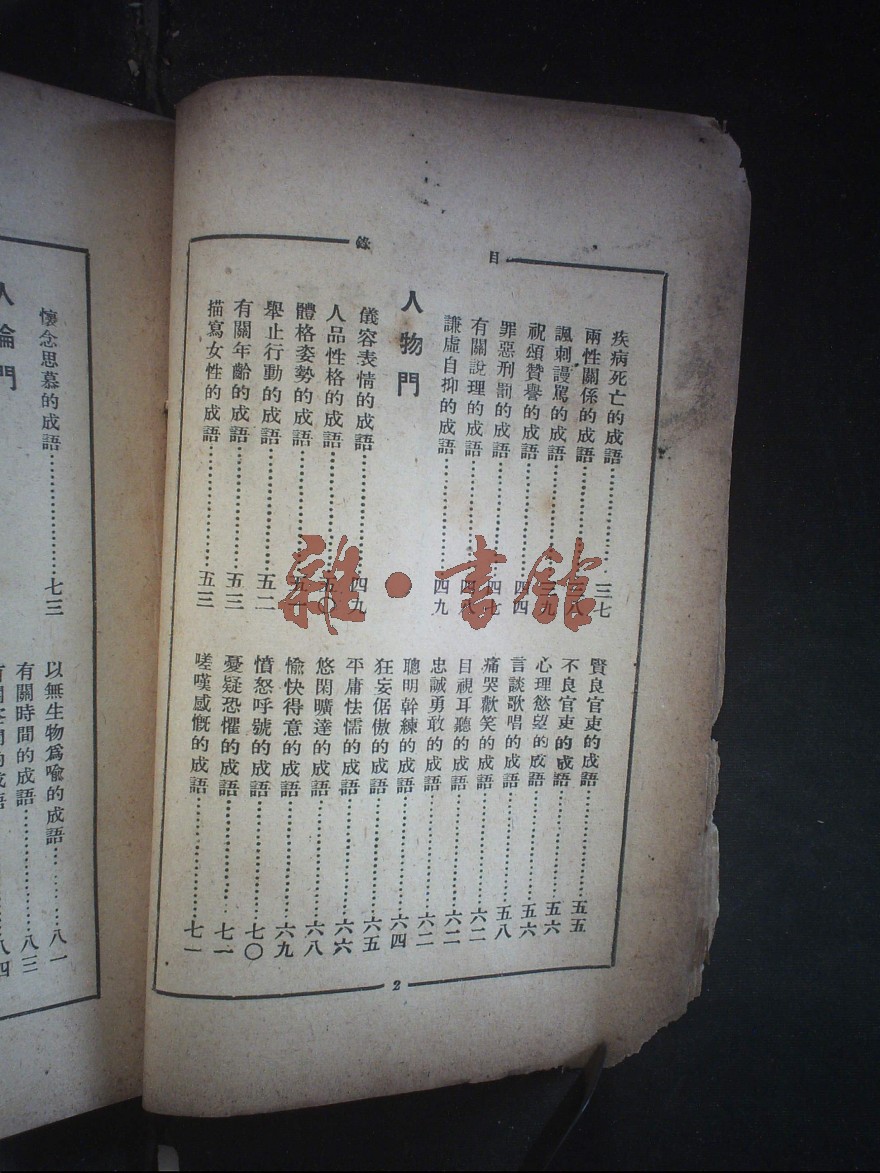 目錄
疾病死亡的成語…………三七
兩性關係的成語…………三八
諷刺謾駡的成語…………三九
祝頌贊譽的成語…………四四
罪惡刑罰的成語…………四七
有關說理的成語…………四八
謙虛自抑的成語…………四九
人物門
儀容表情的成語…………四九
人品性格的成語…………五〇
體格姿勢的成語…………五一
舉止行動的成語…………五二
有關年齡的成語…………五三
描寫女性的成語…………五三
賢良官吏的成語…………五五
不良官吏的成語…………五六
心理慾望的成語…………五六
言談歌唱的成語…………五八
痛哭歡笑的成語…………六二
目視耳聽的成語…………六二
忠誠勇敢的成語…………六二
聰明幹練的成語…………六四
狂妄倨傲的成語…………六五
平庸怯懦的成語…………六六
悠閑曠達的成語…………六八
愉快得意的成語…………六九
憤怒呼號的成語…………七〇
憂疑恐懼的成語…………七一
嗟嘆感慨的成語…………七一
2
懷念思慕的成語…………七三
人倫門
以無生物爲喩的成語…………八一
有關時間的成語…………八三
八四
雜·書舘